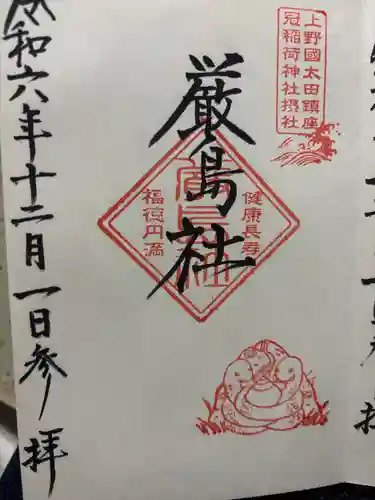 上野國太田鎮座
冠稲荷神社摂社
厳島社
健康長寿
福徳円満
令和六年十二月一日参拝